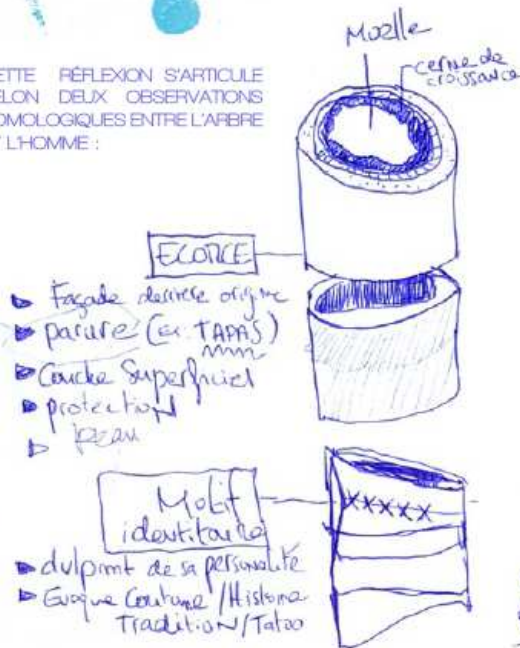 ETTE RÉFLEXION S'ARTICULE
ELON DEUX OBSERVATIONS
OMOLOGIQUES ENTRE L'ARBRE
T L'HOMME :
Moelle
cerne de
croissance
ECORCE
Façade derriere origine
parure (ex. TAPAS)
Couche Superficiel
protection
peau
Motif
identitaire
dvlpmt de sa personalité
Evoque Coutume / Histoire
Tradition / Tatoo
XXXXX